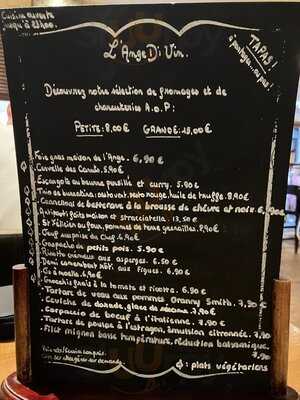 Cuisine ouverte
jusqu'à 23h00.
TAPAS!
à partager... ou pas!
L'Ange Di Vin.
Découvrez notre sélection de fromages et de
charcuteries A.O.P:
PETITE: 8,00 € GRANDE: 15,00 €
Foie gras maison de l'Ange. 6,90 €
Cervelle des Canuts. 5,90€
Escargots au beurre persillé et curry. 5.90€
Trio de burratinas, pesto vert, pesto rouge, huile de truffe. 8,90€
Cannelloni de betterave à la brousse de chèvre et noix. 6,90€
Antipasti faits maison et stracciatella. 13,50 €
St Félicien au four, pommes de terre grenailles. 8,90€
Œuf surprise du Chef. 6.90€
Gaspacho de petits pois. 5.90€
Risotto crémeux aux asperges. 6.50€
Demi camembert rôti aux figues. 6.90€
Os à moelle. 4,90€
Gnocchis gratinés à la tomate et ricotta. 6.90€
- Tartare de veau aux pommes Granny Smith. 7.90€
- Ceviche de dorade, glace de
- Carpaccio de boeuf à l'italienne. 7,90€
- Tartare de poulpe à l'estragon, émulsion citronnée. 7.90
- Filet mignon basse température, réduction balsamique.
7.90
Prix nets/Service compris.
sur demande.
: plats végétariens